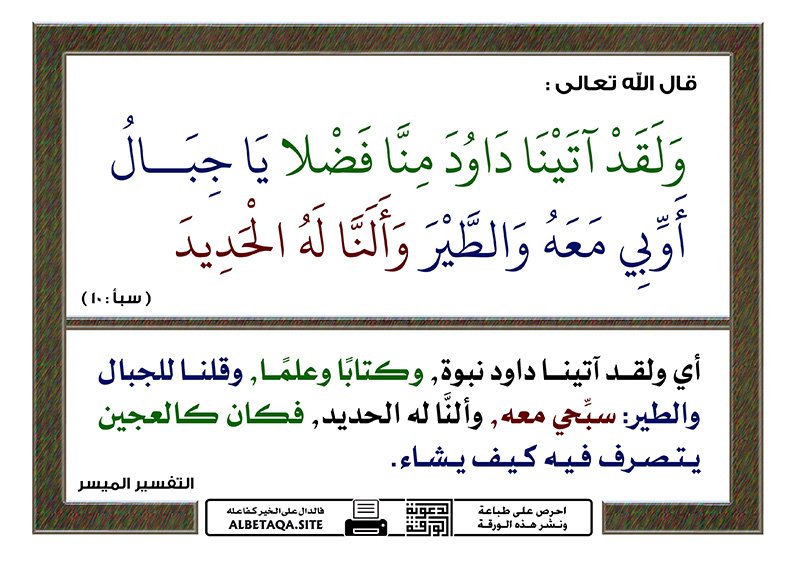 قال الله تعالى :
وَلَقَدْ آتَيْنَا دَاوُدَ مِنَّا فَضْلا يَا جِبَــالُ
أَوِّبِي مَعَهُ وَالطَّيْرَ وَأَلَنَّا لَهُ الْحَدِيدَ
( سبأ : ١٠ )
أي ولقـد آتينـا داود نبوة, وكتابًا وعلمًـا, وقلنـا للجبال
والطير: سبِّحي معه, وألنَّا له الحديد, فكان كالعجين
يتصرف فيه كيف يشاء.
التفسير الميسر
احرص على طباعة
ونشر هذه الورقة
الورقة
الدعوية
فالدال على الخير كفاعله
ALBETAQA.SITE